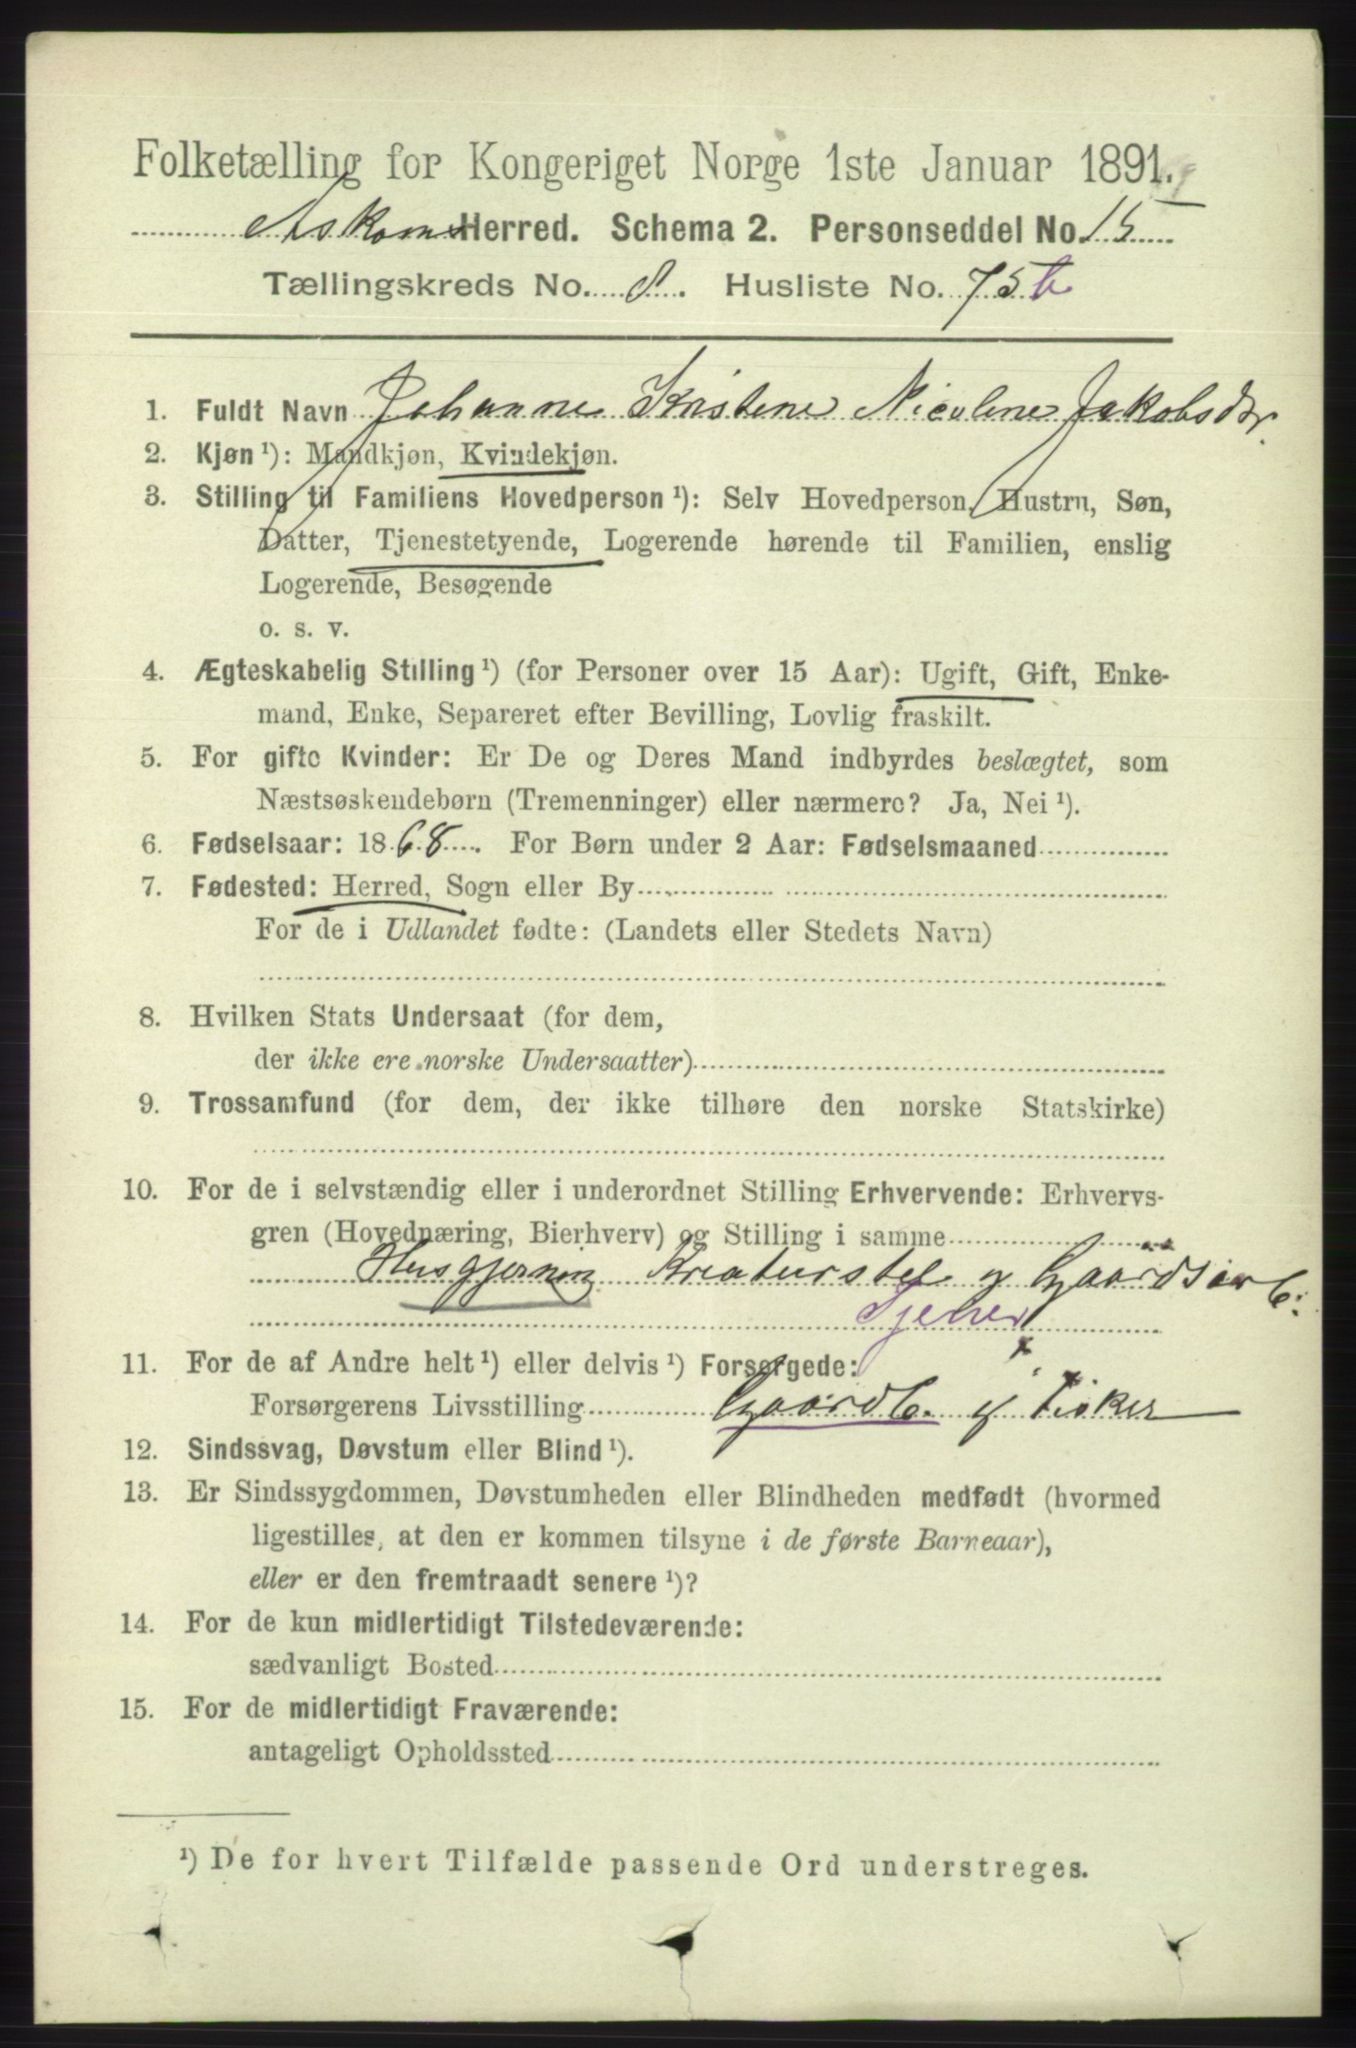 Folketælling for Kongeriget Norge 1ste Januar 1891.
Askoms Herred. Schema 2. Personseddel No. 15
Tællingskreds No. 8. Husliste No. 75 b
1. Fuldt Navn Johanne Kristene Nicoline Jakobsdtr.
2. Kjøn ¹): Mandkjøn, Kvindekjøn.
3. Stilling til Familiens Hovedperson ¹): Selv Hovedperson, Hustru, Søn,
Datter, Tjenestetyende, Logerende hørende til Familien, enslig
Logerende, Besøgende
o. s. v.
4. Ægteskabelig Stilling ¹) (for Personer over 15 Aar): Ugift, Gift, Enke-
mand, Enke, Separeret efter Bevilling, Lovlig fraskilt.
5. For gifte Kvinder: Er De og Deres Mand indbyrdes beslægtet, som
Næstsøskendebørn (Tremenninger) eller nærmere? Ja, Nei ¹).
6. Fødselsaar: 1868. For Børn under 2 Aar: Fødselsmaaned
7. Fødested: Herred, Sogn eller By
For de i Udlandet fødte: (Landets eller Stedets Navn)
8. Hvilken Stats Undersaat (for dem,
der ikke ere norske Undersaatter)
9. Trossamfund (for dem, der ikke tilhøre den norske Statskirke)
10. For de i selvstændig eller i underordnet Stilling Erhvervende: Erhvervs-
gren (Hovednæring, Bierhverv) og Stilling i samme
Husgjerning Kreaturstel og Gaardsarb.
Tjener
11. For de af Andre helt ¹) eller delvis ¹) Forsørgede:
Forsørgerens Livsstilling Gaardb. og Fisker
12. Sindssvag, Døvstum eller Blind ¹).
13. Er Sindssygdommen, Døvstumheden eller Blindheden medfødt (hvormed
ligestilles, at den er kommen tilsyne i de første Barneaar),
eller er den fremtraadt senere ¹)?
14. For de kun midlertidigt Tilstedeværende:
sædvanligt Bosted
15. For de midlertidigt Fraværende:
antageligt Opholdssted
¹) De for hvert Tilfælde passende Ord understreges.